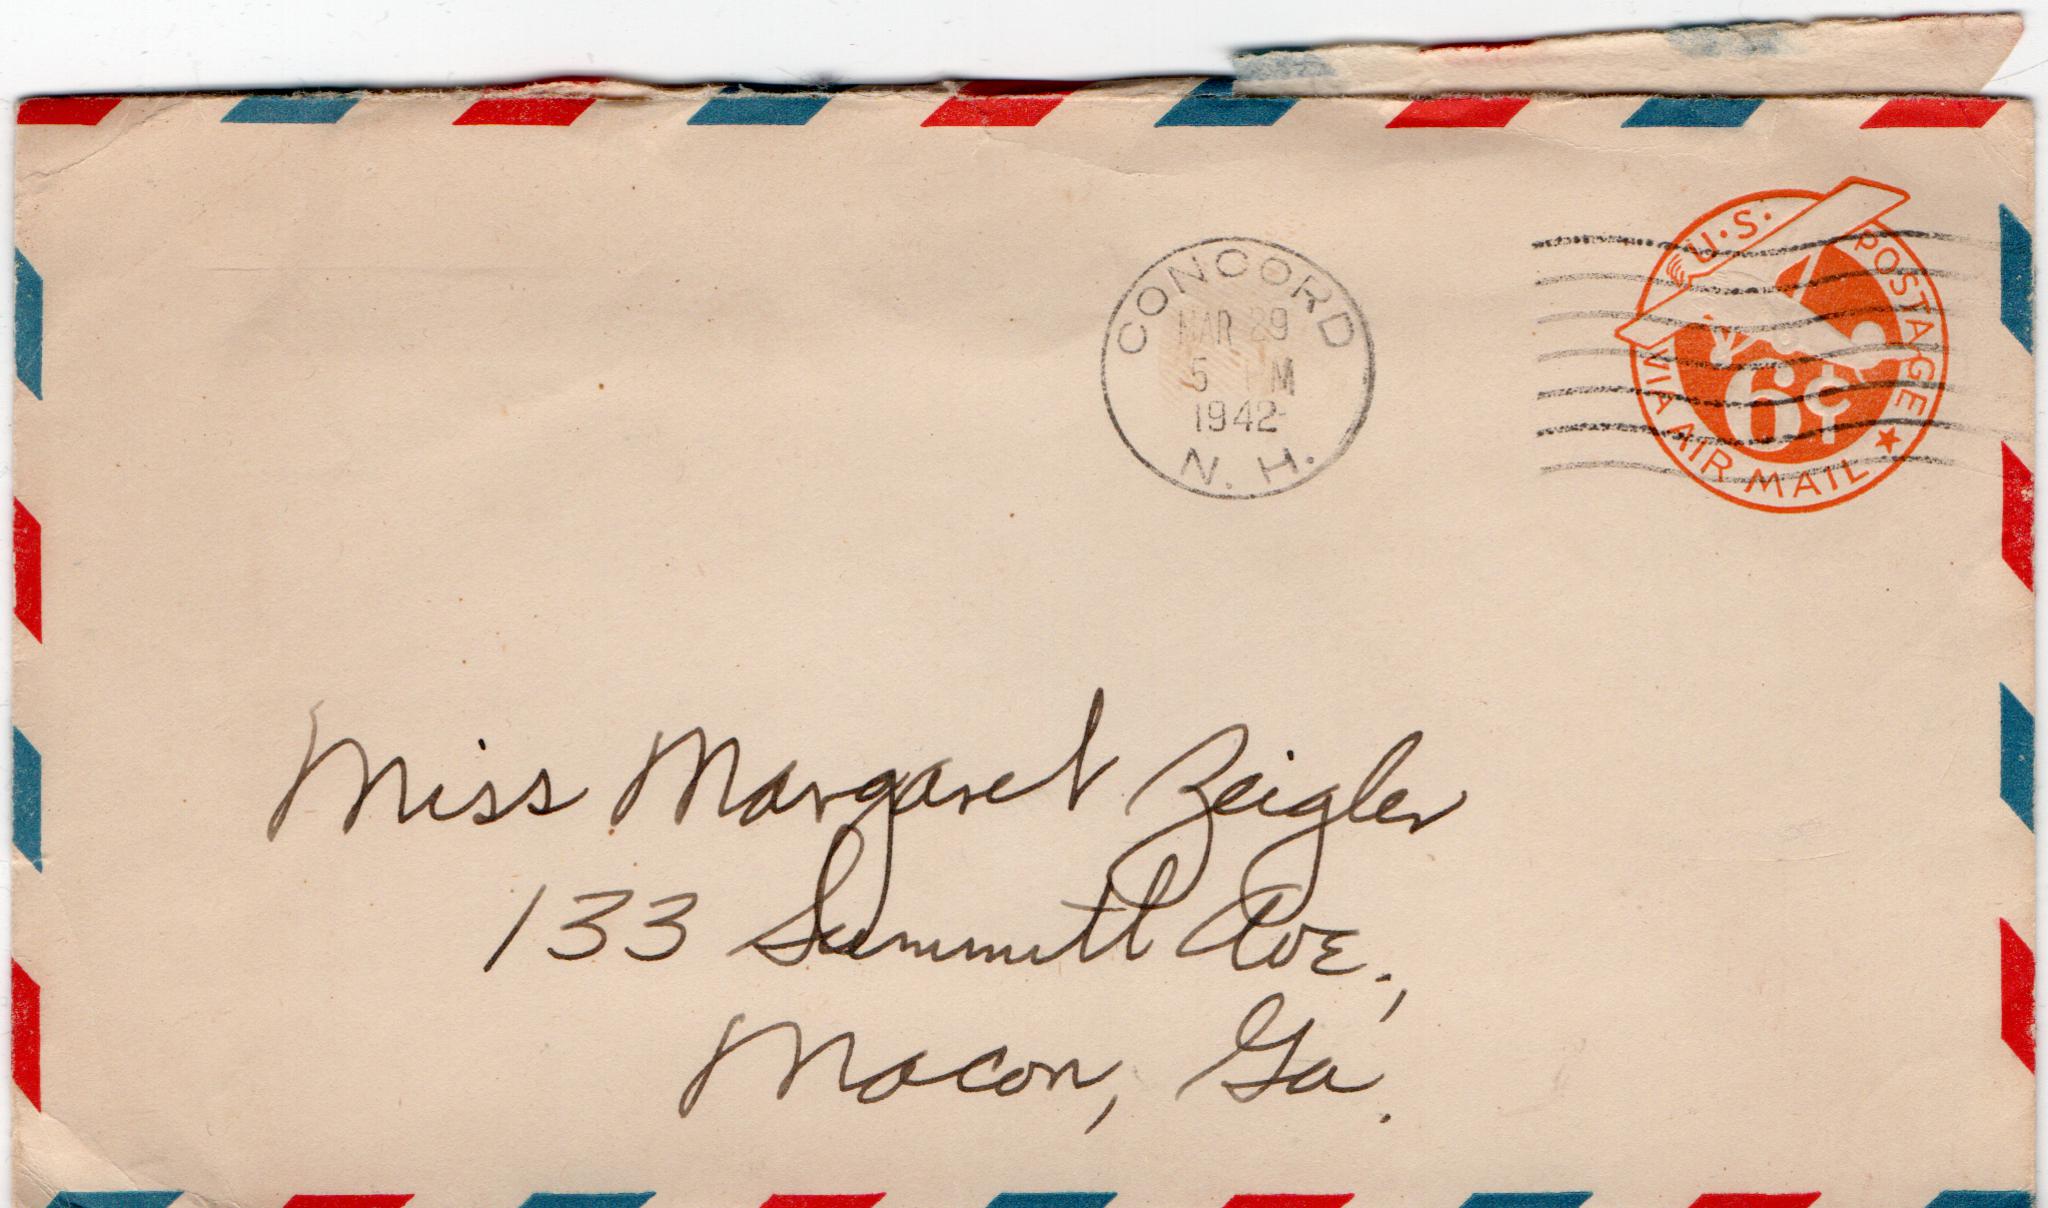 U.S. POSTAGE
VIA AIR MAIL
6¢
CONCORD
MAR 29
5 PM
1942
N. H.
Miss Margaret Zeigler
133 Summitt Ave.,
Macon, Ga.